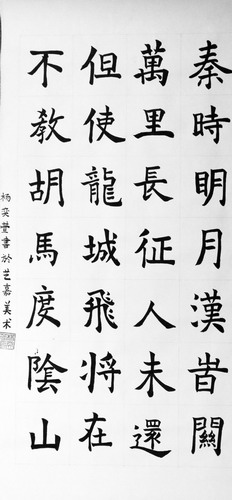 秦時明月漢旹關
萬里長征人未還
但使龍城飛将在
不教胡馬度陰山
杨奕萱書於艺嘉美术